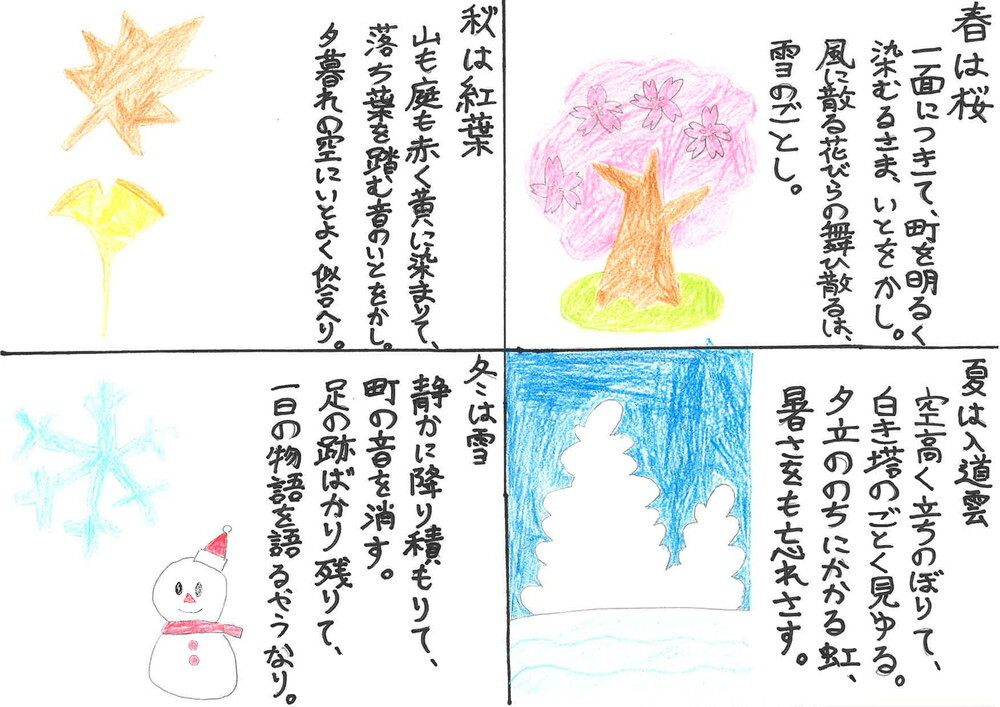 春は桜
一面につきて、町を明るく
染むるさま、いとをかし。
風に散る花びらの舞ひ散るは、
雪のごとし。
夏は入道雲
空高く立ちのぼりて、
白き塔のごとく見ゆる。
夕立ののちにかかる虹、
暑さをも忘れさす。
秋は紅葉
山も庭も赤く黄に染まりて、
落ち葉を踏む音のいとをかし。
夕暮れの空にいとよく似合へり。
冬は雪
静かに降り積もりて、
町の音を消す。
足の跡ばかり残りて、
一日の物語を語るやうなり。